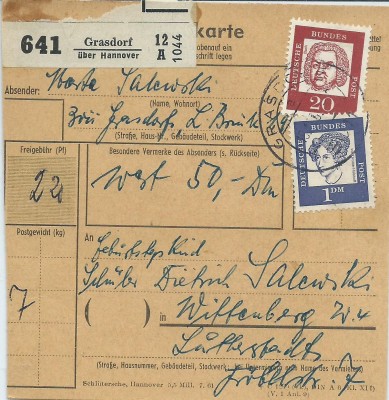 641
Grasdorf
über Hannover
12
A
1044
karte
obenauf ein
schrift legen
DEUTSCHE BUNDES POST
20
Absender:
Salewski
(Name, Wohnort)
Grasdorf
(Straße, Haus-Nr., Gebäudeteil, Stockwerk)
GRASD
Freigebühr (Pf)
Besondere Vermerke des Absenders (s. Rückseite)
DEUTSCHE BUNDES POST
1 DM
22
Wert 50,- Dm
Postgewicht (kg)
7
An
Geburtstagskind
Schüler Dietrich Salewski
in Wittenberg W. 4
Lutherstadt
(Straße, Hausnummer, Gebäudeteil, Stockwerk, bei Untermietern auch Name des Vermieters)
Fröbelstr. 7
Schlütersche, Hannover 5,5 Mill. 7. 61
DIN A 6, Kl. XII)
(V, 1 Anl. 9)